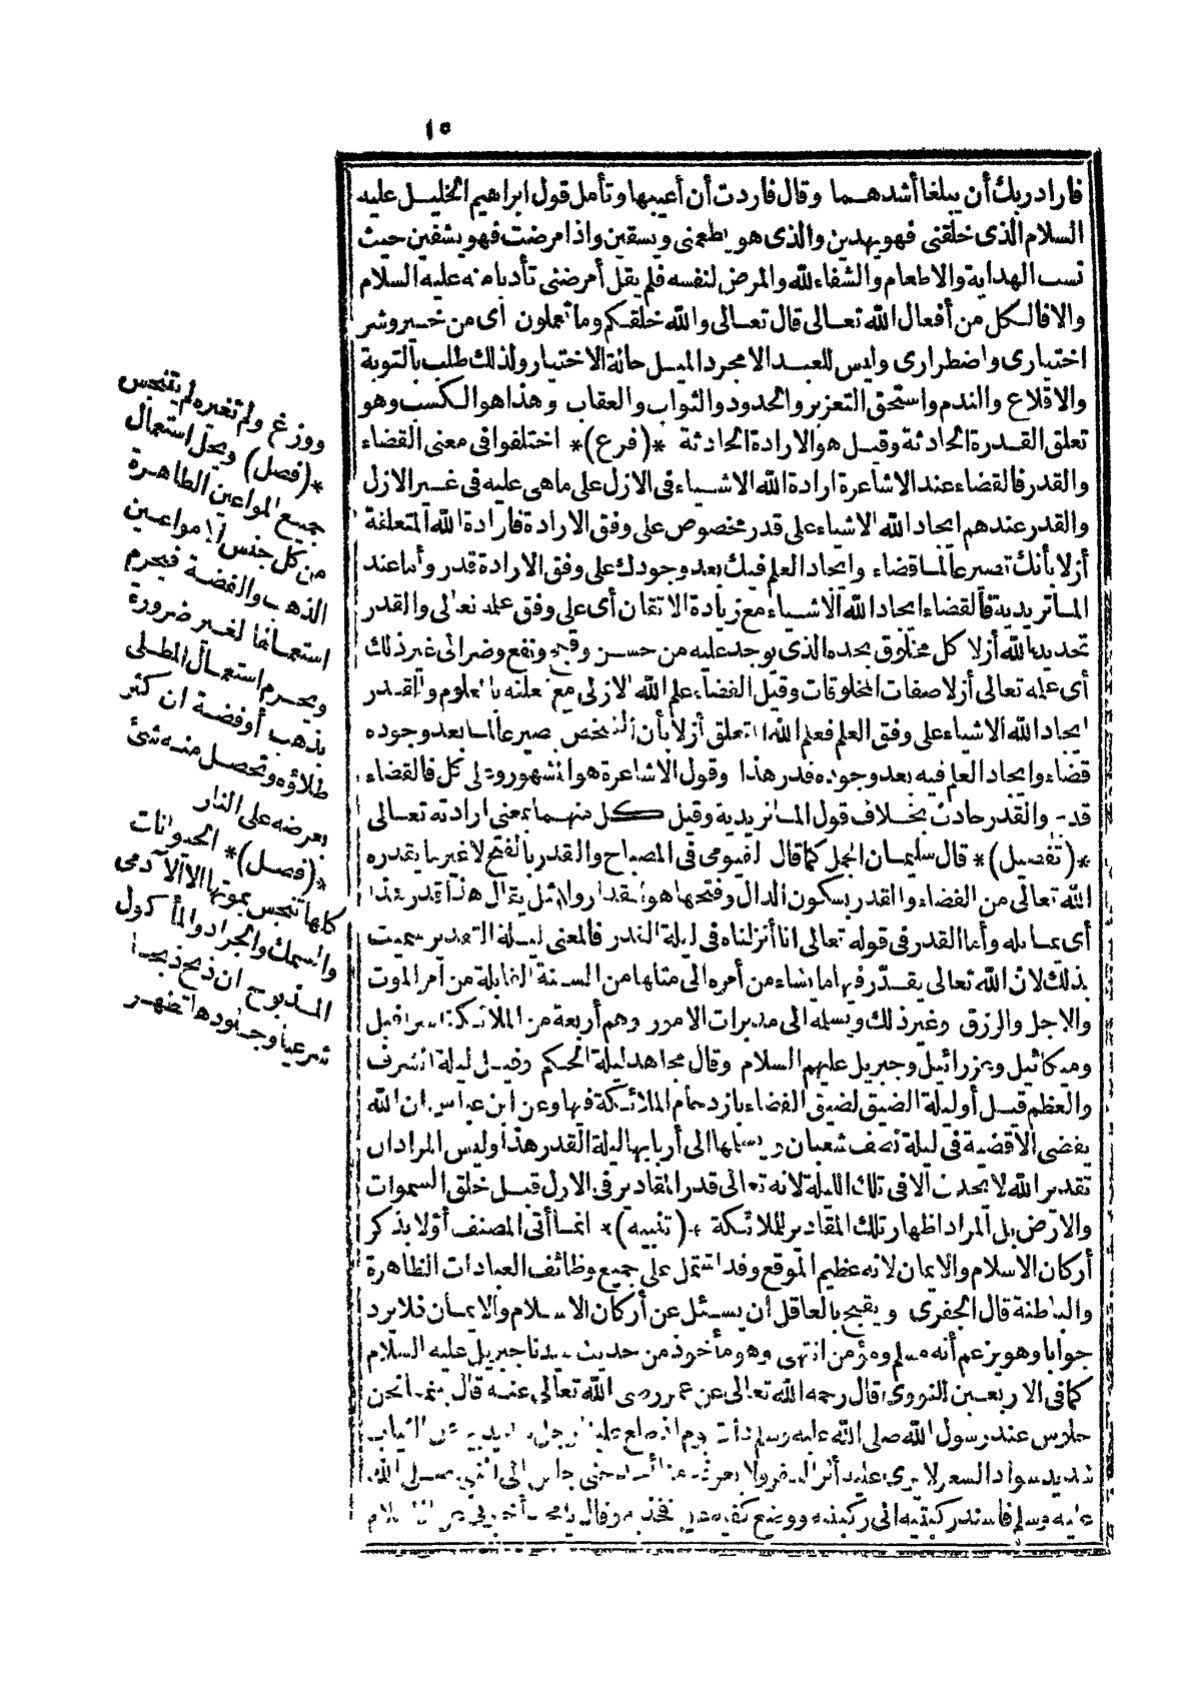 ١٥
فأراد ربك أن يبلغا أشدهما وقال فاردت أن أعيبها وتأمل قول ابراهيم الخليل عليه
السلام الذى خلقنى فهو يهدين والذى هو يطعمنى ويسقين واذا مرضت فهو يشفين حيث
نسب الهداية والاطعام والشفاء لله والمرض لنفسه فلم يقل أمرضنى تأدبا منه عليه السلام
والا فالكل من أفعال الله تعالى قال تعالى والله خلقكم وما تعملون أى من خير وشر
اختيارى واضطرارى وليس للعبد الا مجرد الميل حالة الاختيار ولذلك طلب بالتوبة
والاقلاع والندم واستحق التعزير والحدود والثواب والعقاب وهذا هو الكسب وهو
تعلق القدرة الحادثة وقيل هو الارادة الحادثة *(فرع)* اختلفوا فى معنى القضاء
والقدر فالقضاء عند الاشاعرة ارادة الله الاشياء فى الازل على ما هى عليه فى غير الازل
والقدر عندهم ايجاد الله الاشياء على قدر مخصوص على وفق الارادة فارادة الله المتعلقة
أزلا بأنك تصير عالما قضاء وايجاد العلم فيك بعد وجودك على وفق الارادة قدر وأما عند
الماتريدية فالقضاء ايجاد الله الاشياء مع زيادة الاتقان أى على وفق علمه تعالى والقدر
تحديد الله أزلا كل مخلوق بحده الذى يوجد عليه من حسن وقبح ونفع وضر الى غير ذلك
أى علمه تعالى أزلا صفات المخلوقات وقيل القضاء علم الله الازلى مع تعلقه بالمعلوم والقدر
ايجاد الله الاشياء على وفق العلم فعلم الله المتعلق أزلا بأن الشخص يصير عالما بعد وجوده
قضاء وايجاد العلم فيه بعد وجوده قدر هذا وقول الاشاعرة هو المشهور وعلى كل فالقضاء
قديم والقدر حادث بخلاف قول الماتريدية وقيل كل منهما بمعنى ارادته تعالى
*(تفصيل)* قال سليمان الجمل كما قال الفيومى فى المصباح والقدر بالفتح لا غير ما يقدره
الله تعالى من القضاء والقدر بسكون الدال وفتحها هو المقدار والمثل يقال هذا قدر هذا
أى يماثله وأما القدر فى قوله تعالى انا أنزلناه فى ليلة القدر فالمعنى ليلة التقدير سميت
بذلك لان الله تعالى يقدر فيها ما يشاء من أمره الى مثلها من السنة القابلة من أمر الموت
والاجل والرزق وغير ذلك ويسلمه الى مدبرات الامور وهم أربعة من الملائكة اسرافيل
وميكائيل وعزرائيل وجبريل عليهم السلام وقال مجاهد ليلة الحكم وقيل ليلة الشرف
والعظم قيل أو ليلة الضيق لضيق الفضاء بازدحام الملائكة فيها وعن ابن عباس ان الله
يقضى الاقضية فى ليلة نصف شعبان ويسلمها الى أربابها ليلة القدر هذا وليس المراد ان
تقدير الله لا يحدث الا فى تلك الليلة لانه تعالى قدر المقادير فى الازل قبل خلق السموات
والارض بل المراد اظهار تلك المقادير للملائكة *(تنبيه)* انما أتى المصنف أولا بذكر
أركان الاسلام والايمان لانه عظيم الموقع وقد اشتمل على جميع وظائف العبادات الظاهرة
والباطنة قال الجفرى ويقبح بالعاقل أن يسئل عن أركان الاسلام والايمان فلا يرد
جوابا وهو يزعم أنه مسلم ومؤمن انتهى وهو مأخوذ من حديث سيدنا جبريل عليه السلام
كما فى الاربعين النووى قال رحمه الله تعالى عن عمر رضى الله تعالى عنه قال بينما نحن
جلوس عند رسول الله صلى الله عليه وسلم ذات يوم اذ طلع علينا رجل شديد بياض الثياب
شديد سواد الشعر لا يرى عليه أثر السفر ولا يعرفه منا أحد حتى جلس الى النبى صلى الله
عليه وسلم فاسند ركبتيه الى ركبتيه ووضع كفيه على فخذيه وقال يا محمد أخبرنى عن الاسلام
ووزغ ولم تغيره لم يتنجس
*(فصل) ويحل استعمال
جميع المواعين الطاهرة
من كل جنس الا مواعين
الذهب والفضة فيحرم
استعمالها لغير ضرورة
ويحرم استعمال المطلى
بذهب أو فضة ان كثر
طلاؤه وتحصل منه شئ
بعرضه على النار
*(فصل)* الحيوانات
كلها تنجس بموتها الا الآدمى
والسمك والجراد والمأكول
المذبوح ان ذبح ذبحا
شرعيا وجلودها تطهر